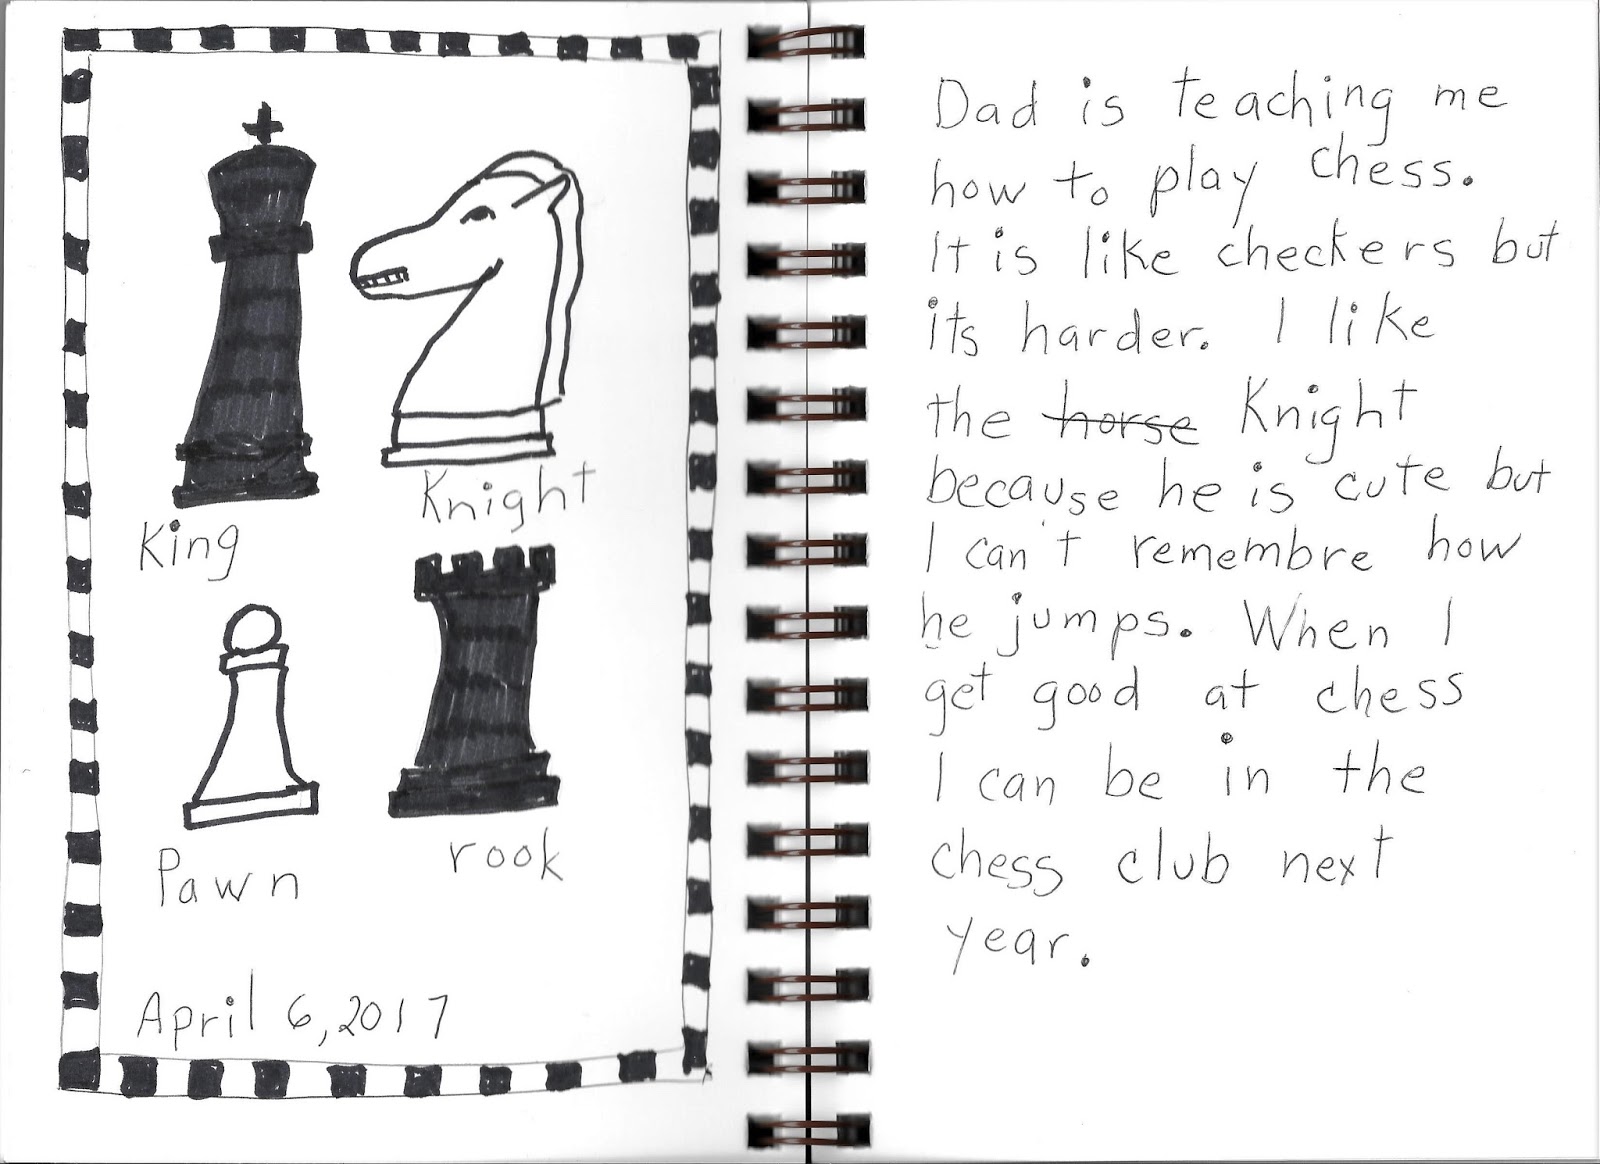 King
Knight
Pawn
rook
April 6, 2017
Dad is teaching me
how to play chess.
It is like checkers but
its harder. I like
the horse Knight
because he is cute but
I can't remembre how
he jumps. When I
get good at chess
I can be in the
chess club next
year.